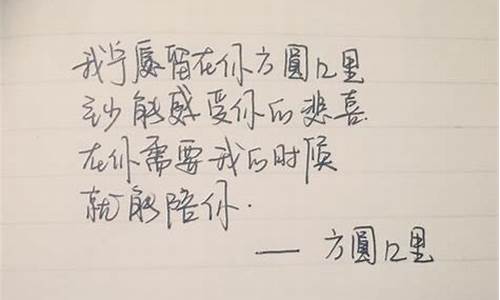 我宁愿留在你方圓几里
至少能感受你的悲喜
在你需要我的时候
就能陪你.
—— 方圓几里